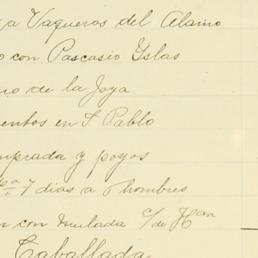 a Vaqueros del Alamo
o con Pascasio Yslas
no de la Joya
entos en S. Pablo
mpreada y poyos
pa 7 dias a 6 hombres
n con mulada c/ de Han
Caballada